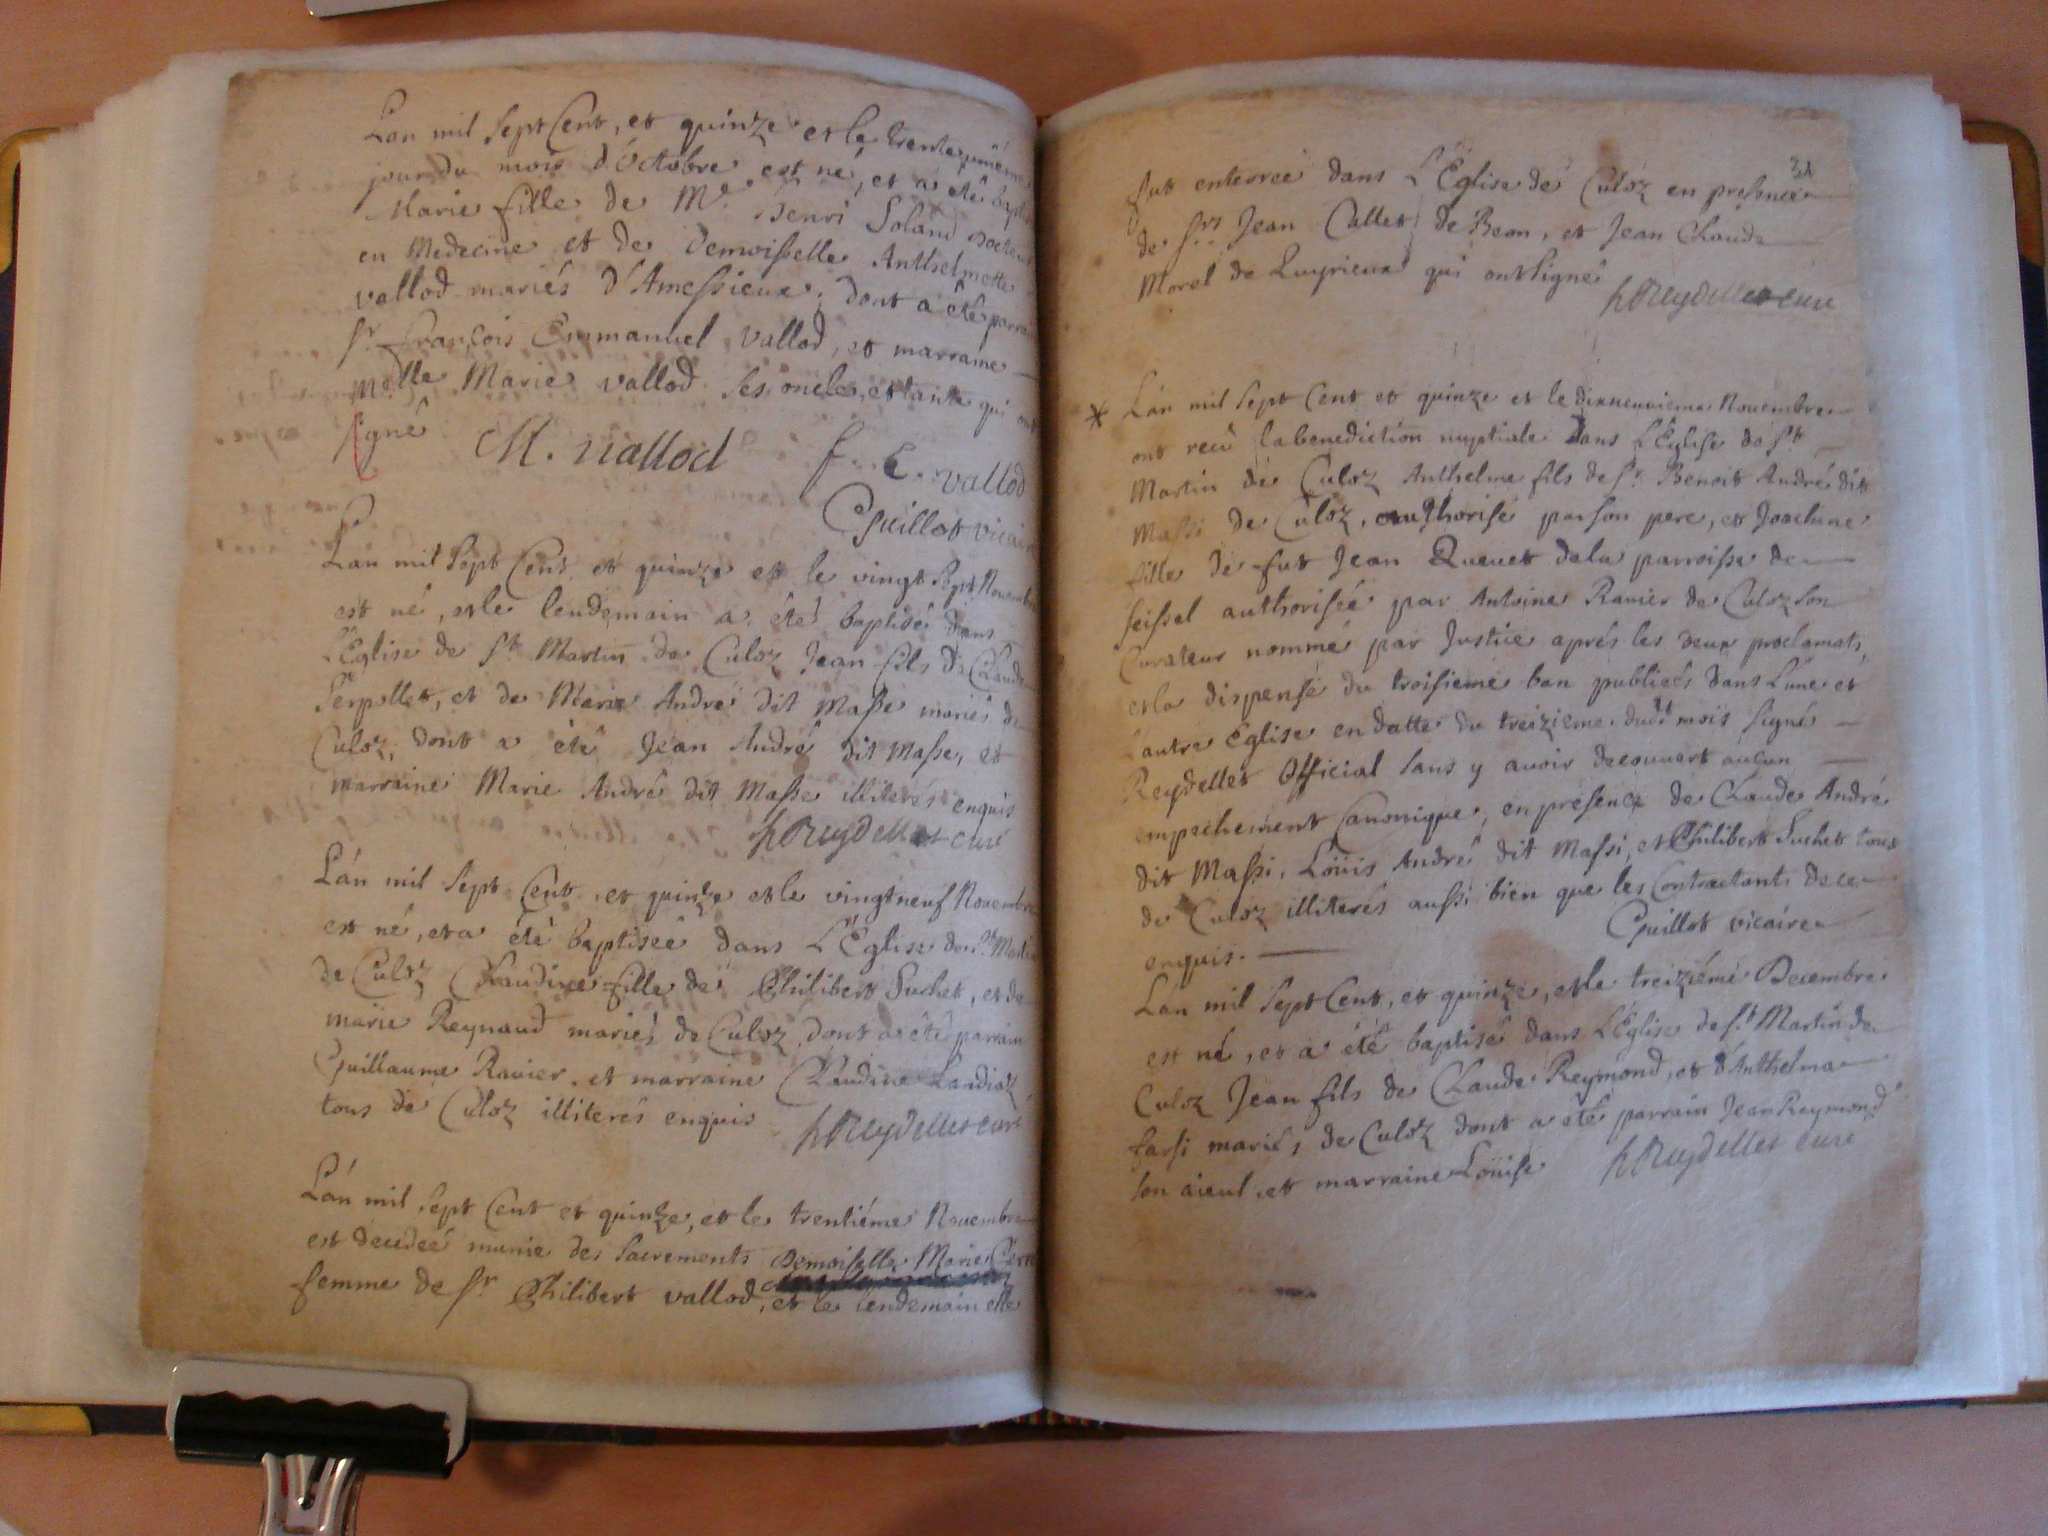 Lan mil sept Cent, et quinze et le trente
jour du mois d'Octobre est né, et a eté
Marie fille de Mr. Henri Soland Docteur
en Medecine et de Demoisselle Anthelmette
vallod mariés d'Amessieux, dont a été parrain
sr. François Emmanuel vallod, et marraine
Melle Marie vallod ses oncle, et tante qui ont
signé M. vallod f. E. vallod
Guillot vicaire
Lan mil sept Cent et quinze et le vingt sept Novembre
est né, et le lendemain a été baptisé dans
L'Eglise de st. Martin de Culoz Jean fils de Claude
Serpollet, et de Marie André dit Masse mariés de
Culoz, dont a été Jean André dit Masse, et
marraine Marie André dit Masse illiterés enquis
Reydellet curé
Lán mil sept Cent, et quinze et le vingt neuf Novembre
est né, et a été baptisée dans L'Eglise de st. Martin
de Culoz Claudine fille de Philibert Suchet, et de
marie Reynaud mariés de Culoz dont a été parrain
Guillaume Ravier, et marraine Claudine Lardiaz
tous de Culoz illiterés enquis Reydellet curé
Lán mil sept Cent et quinze, et le trentiéme Novembre
est decedeé munie des sacrements Demoiselle Marie
femme de sr Philibert vallod, et le lendemain elle
31
fut enterreé dans L'Eglise de Culoz en presence
de srs Jean Callet de Beon, et Jean Claude
Morel de Luyrieux qui ont signé
Reydellet curé
* Lán mil sept Cent et quinze et le dixneuvieme Novembre
ont recu la benediction nuptiale dans L'Eglise de st.
Martin de Culoz Anthelme fils de sr. Benoit André dit
Massi de Culoz, authorisé par son pere, et Joachine
fille de fut Jean Quevet de la parroisse de
seissel authorisée par Antoine Ravier de Culoz son
Curateur nommé par Justice aprés les deux proclamats,
et la dispense du troisieme ban publiées dans L'une et
L'autre Eglise en datte du treizieme dudt mois signé
Reydellet Official sans y avoir decouvert aucun
empechement Canonique, en presence de Claude André
dit Massi, Loüis André dit Massi, et Philibert Suchet tous
de Culoz illiterés aussi bien que les Contractants de ce
enquis. Guillot vicaire
Lan mil sept Cent, et quinze, et le treiziémé Decembre
est né, et a été baptisé dans L'Eglise de st Martin de
Culoz Jean fils de Claude Reymond, et d'Anthelma
farsi mariés de Culoz dont a été parrain Jean Reymond
son aieul, et marraine Loüise Reydellet curé